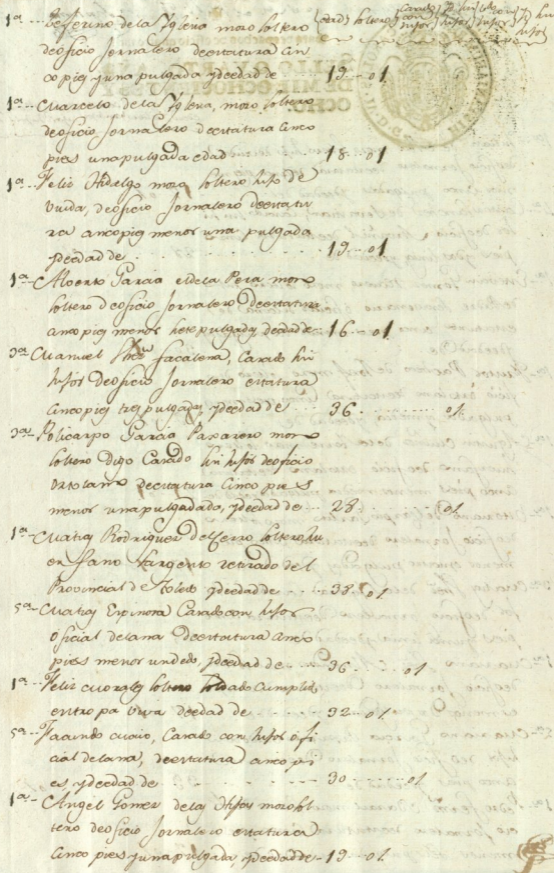 1ª Zeferino de la Yglesia moso soltero
de oficio Jornalero de estatura cin
co pies y una pulgada y de edad de 19 01
1ª Marcelo de la Yglesia, moso soltero
de oficio Jornalero de estatura cinco
pies una pulgada edad 18 01
1ª Feliz Hidalgo moso soltero hijo de
viuda, de oficio Jornalero de estatu
ra cinco pies menos una pulgada
y de edad de 19 01
1ª Alberto Garcia el de la Pera moso
soltero de oficio Jornalero de estatura
cinco pies menos siete pulgadas de edad de 16 01
3ª Manuel Facalena, Casado sin
hijos de oficio Jornalero estatura
cinco pies tres pulgadas, y de edad de 36 01
3ª Policarpo Garcia Paxarero moso
soltero digo Casado sin hijos de oficio
Ortolano de estatura cinco pies
menos una pulgada, y de edad de 28 01
1ª Matias Rodriguez del Zerro soltero hu
erfano sargento retirado del
Provincial de Toledo y de edad de 38 01
5ª Matias Espinosa Casado con hijos
oficial de lana de estatura cinco
pies menos un dedo, y de edad de 36 01
1ª Feliz Morales soltero soldado cumplido
en tropa viva de edad de 32 01
5ª Facundo Casado con hijos ofi
cial de lana, de estatura cinco pi
es y de edad de 30 01
1ª Angel Gomez de las Hijas moso sol
tero de oficio Jornalero estatura
cinco pies y una pulgada, y de edad de 19 01